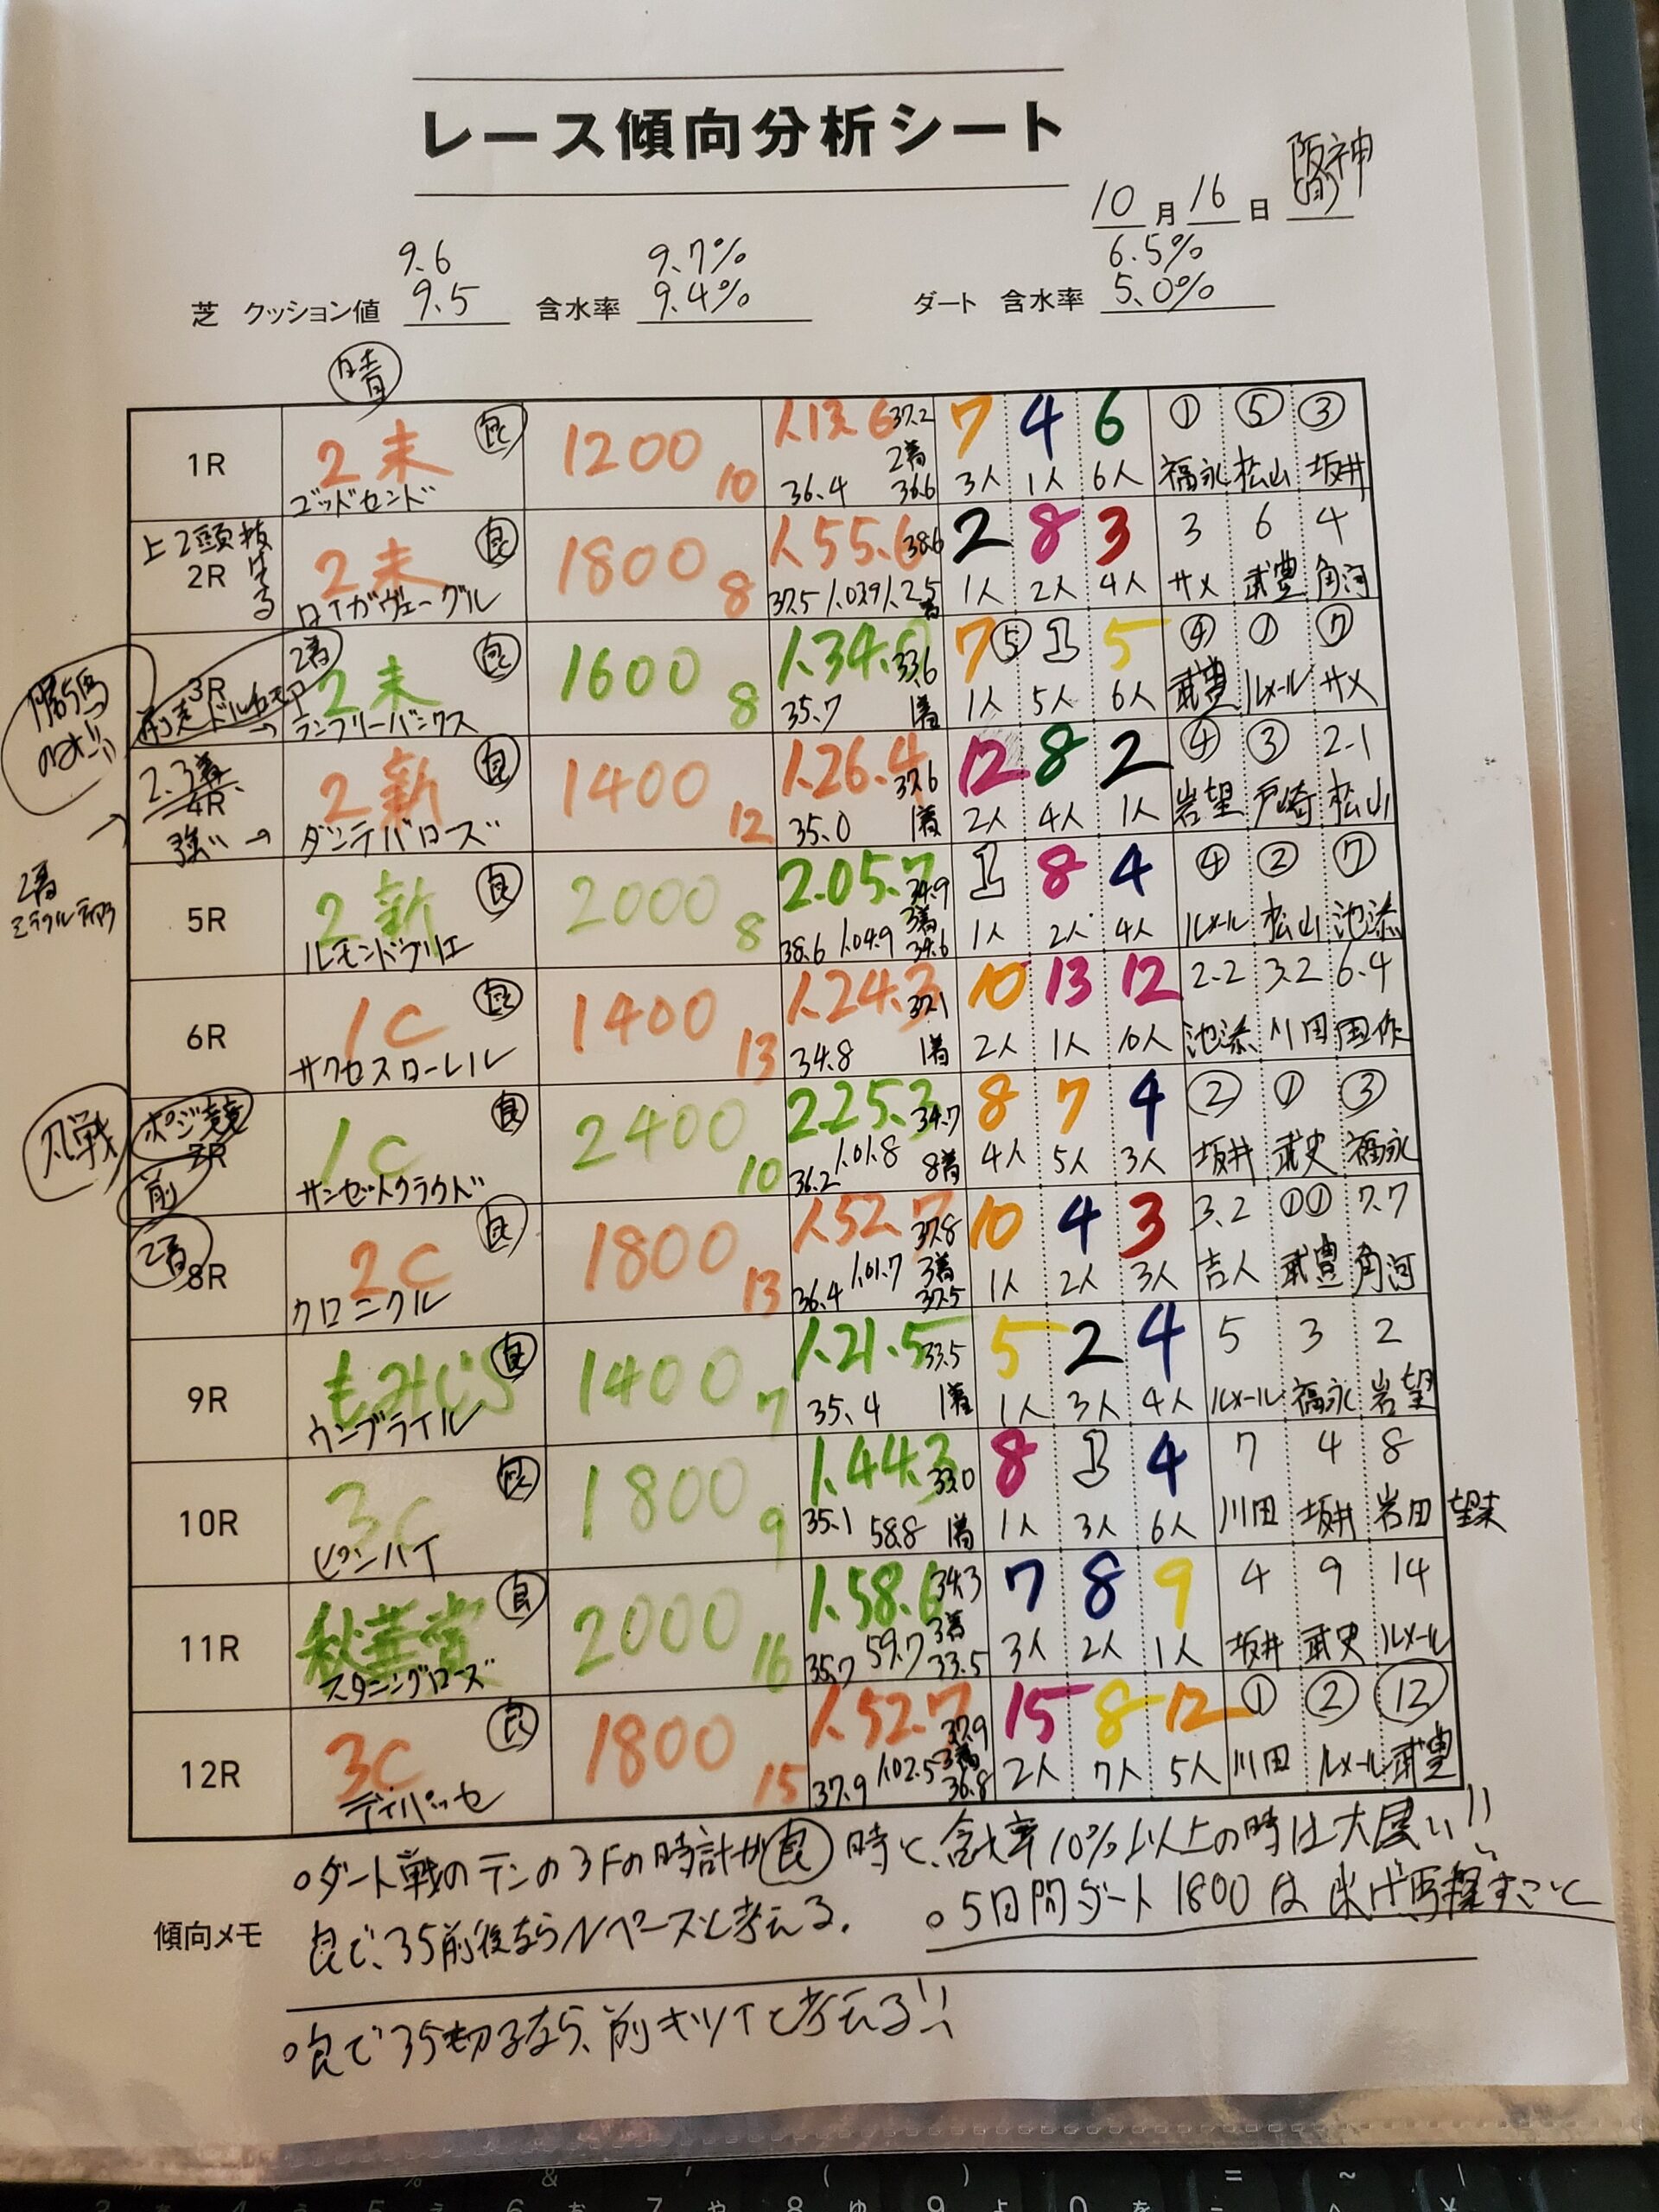 レース傾向分析シート
阪神
10月16日
9.6 9.7% 6.5%
芝 クッション値 9.5 含水率 9.4% ダート 含水率 5.0%
晴
1R 2未 良 1200 10 37.2 7 4 6 ① ⑤ ③
ゴッドセンド 36.4 2着 36.6 3人 1人 6人 福永 松山 坂井
上2頭抜けてる
2R 2未 良 1800 8 1.55.6 38.6 2 8 3 3 6 4
ロイガヴェーグル 37.5 1.03.9 1人 2人 4人 サメ 武豊 角河
3R 2着 2未 良 1600 8 33.6 7 ⑤ 1 5 ④ ① ⑦
→ 35.7 1着 1人 5人 6人 武豊 ルメール サメ
2.3着
4R 2新 良 1400 12 1.26.4 37.6 12 8 2 ④ ③ 2-1
強い → ダンテバローズ 35.0 1着 2人 4人 1人 岩望 戸崎 松山
2着
5R 2新 良 2000 8 2.05.7 34.9 1 8 4 ④ ② ⑦
ルモンドブリエ 38.6 1.04.9 3着 34.6 1人 2人 4人 ルメール 松山 池添
6R 1C 良 1400 13 1.24.3 37.1 10 13 12 2-2 3.2 6-4
サクセスローレル 34.8 1着 2人 1人 10人 池添 川田 国作
凡戦 ポジ競
7R 1C 良 2400 10 2.25.3 34.7 8 7 4 ② ① ③
前 サンセットクラウド 36.2 1.01.8 8着 4人 5人 3人 坂井 武史 福永
2着
8R 2C 良 1800 13 1.52.7 37.8 10 4 3 3.2 ①① 7.7
クロニクル 36.4 1.01.7 3着 37.5 1人 2人 3人 吉人 武豊 角河
9R もみじS 良 1400 7 1.21.5 33.5 5 2 4 5 3 2
ウンブライル 35.4 1着 1人 3人 4人 ルメール 福永 岩望
10R 3C 良 1800 9 1.44.3 33.0 8 1 4 7 4 8
ピンハイ 35.1 58.8 1着 1人 3人 6人 川田 坂井 岩田 望来
11R 秋華賞 良 2000 16 1.58.6 34.3 7 8 9 4 9 14
スタニングローズ 35.7 59.7 3着 33.5 3人 2人 1人 坂井 武史 ルメール
12R 3C 良 1800 15 1.52.7 37.9 15 8 12 ① ② ⑫
ディパッセ 37.9 1.02.5 3着 36.8 2人 7人 5人 川田 ルメール 武豊
傾向メモ
○ダート戦のテンの3Fの時計が良時と、含水率10%以上の時は大違い!!
良で、35前後ならMペースと考える。 ○5日間ダート1800は逃げ馬探すこと
○良で35切るなら、前キツイと考える!!